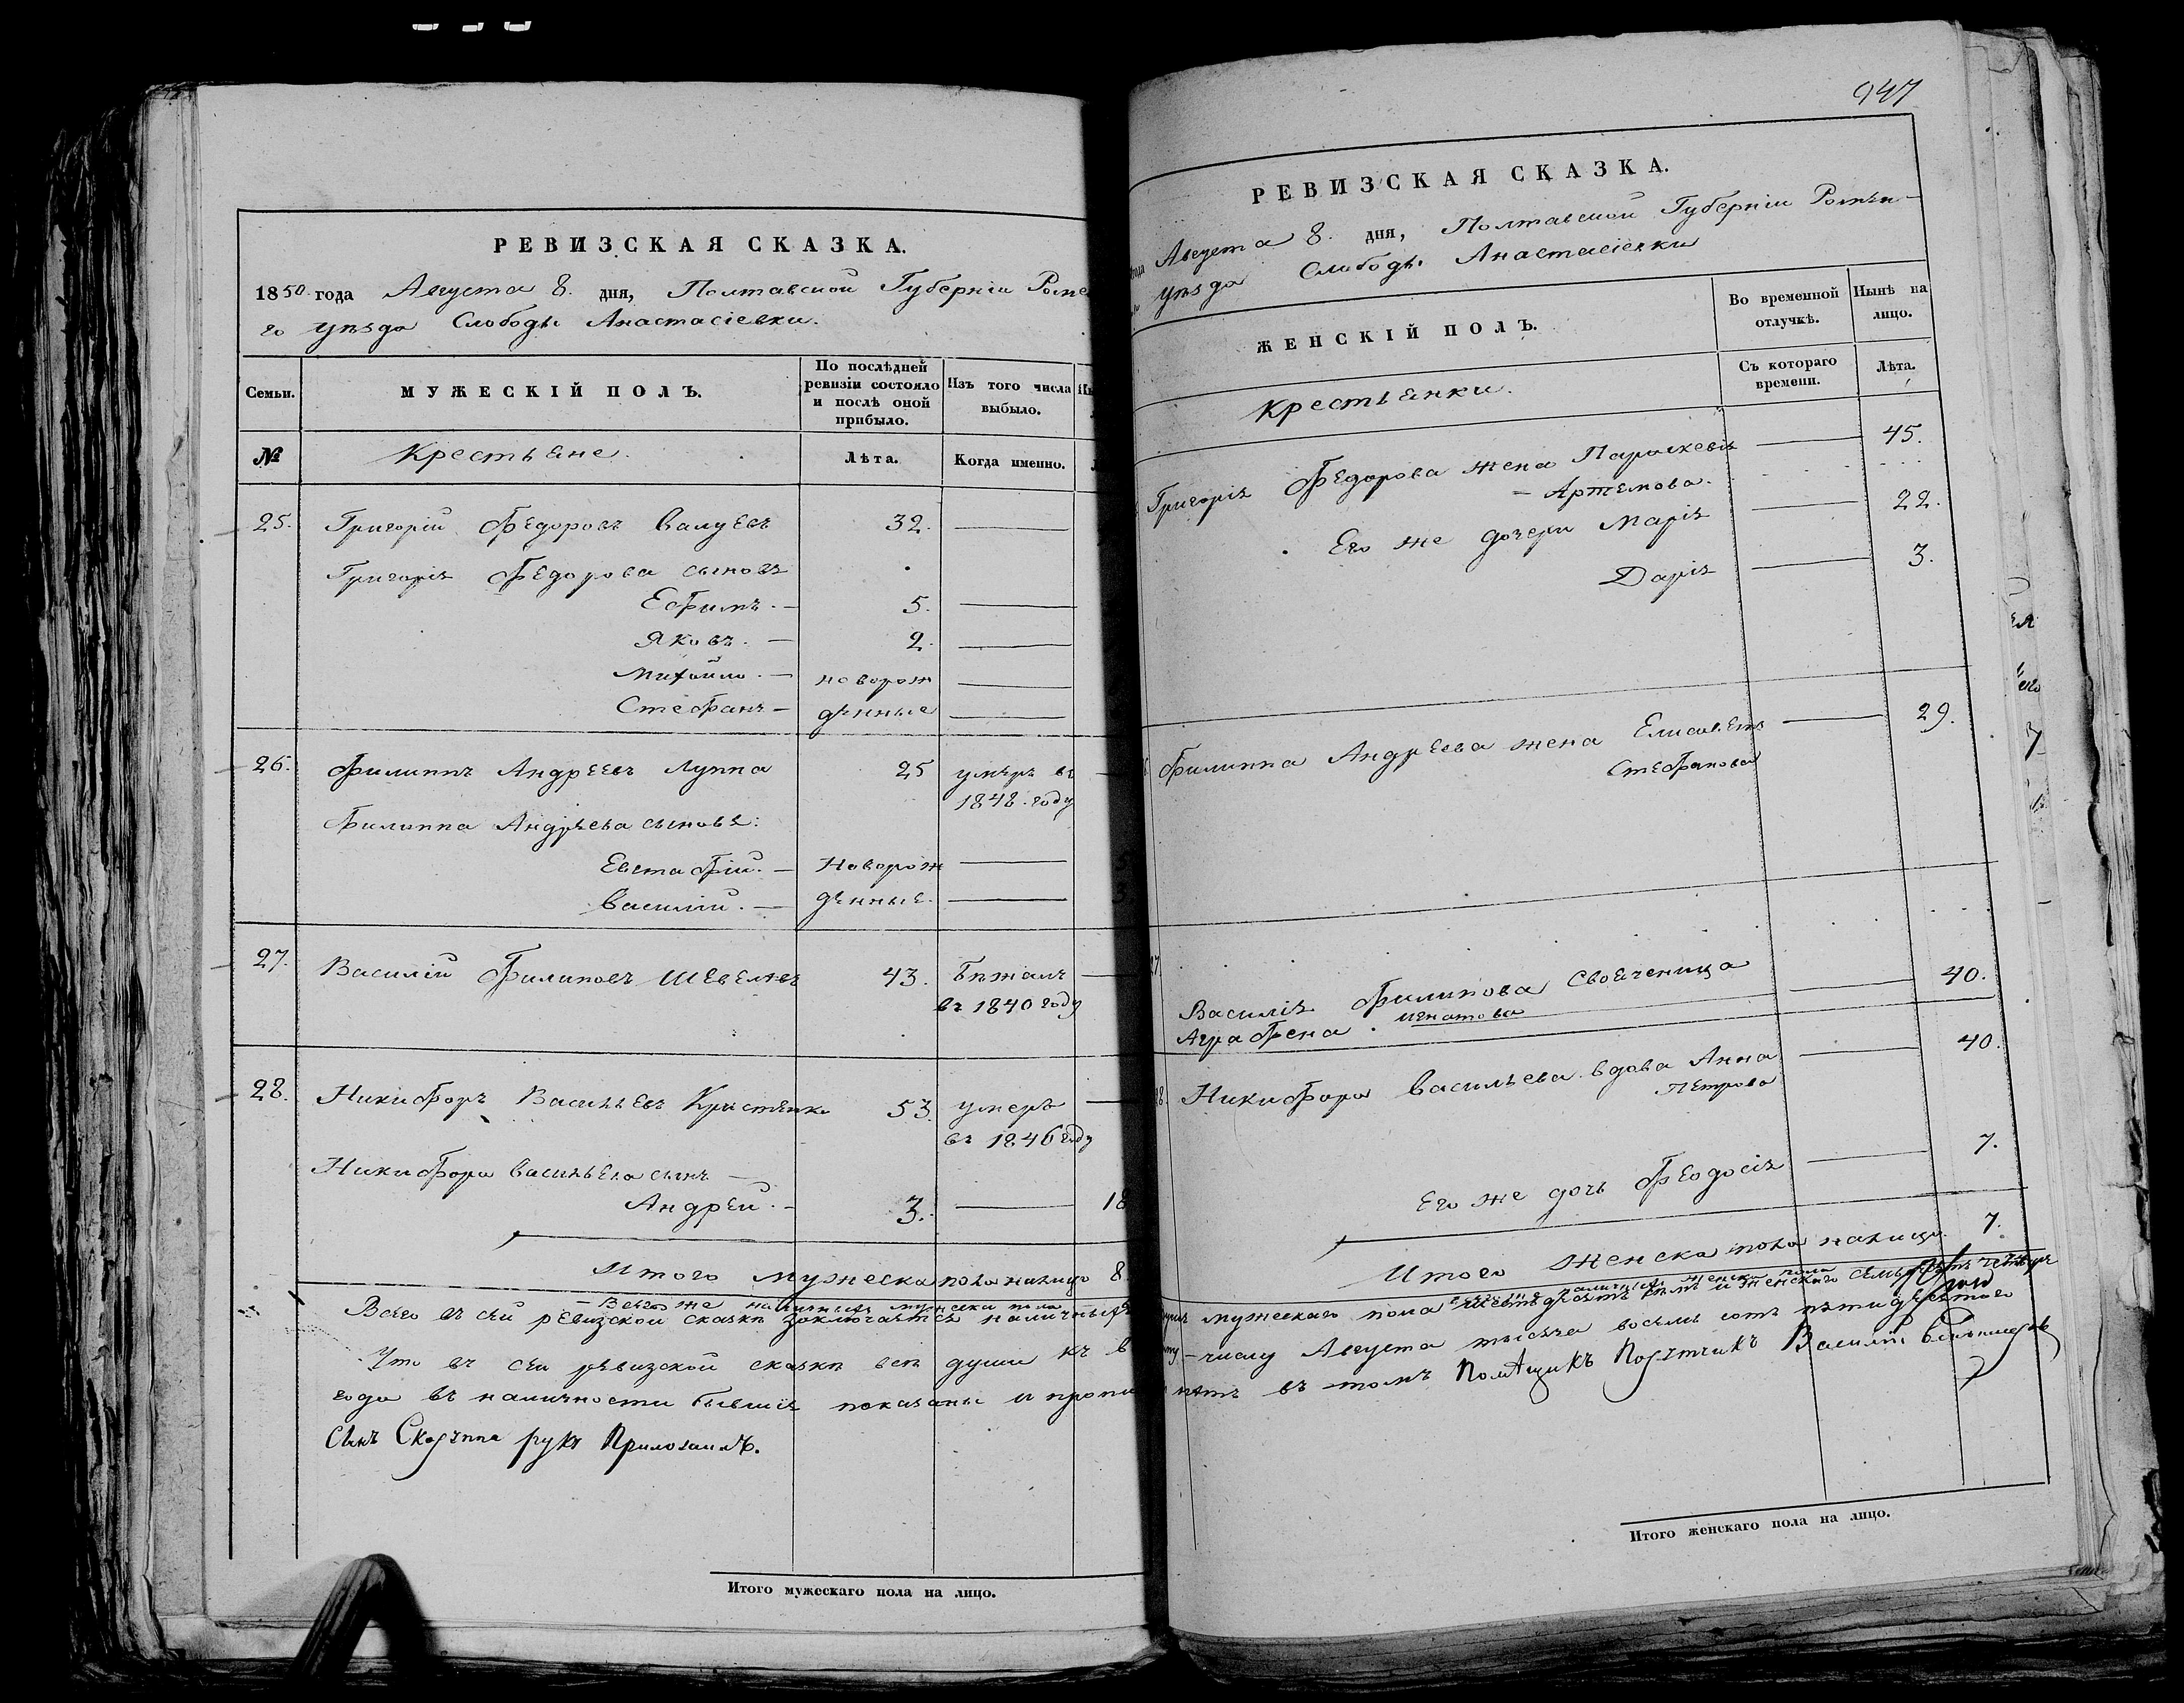 РЕВИЗСКАЯ СКАЗКА.
1850 года Августа 8. дня, Полтавской Губерніи Роме
го уѣзда Слободы Анастасіевки.
Семьи.
МУЖЕСКІЙ ПОЛЪ.
По послѣдней ревизіи состояло и послѣ оной прибыло.
Изъ того числа выбыло.
№
Крестьяне.
Лѣта.
Когда именно.
25. Григорій Федоровъ Валуевъ 32.
Григорія Федорова сыновя
Ефимъ. — 5.
Яковъ. — 2.
Михайло. — новорож
Стефанъ — денные
26. Филиппъ Андреевъ Луппа 25 умеръ въ
1848. году
Филиппа Андрѣева сыновя:
Евстафій. — Новорож
Василій. — денные.
27. Василій Филиповъ Шевелѣвъ 43. Бѣжалъ
въ 1840 году
28. Никифоръ Васильевъ 53. умеръ
въ 1846 году
Никифора Васильева сынъ —
Андрей. — 3. 18
Итого мужеска пола налицо 8
— Всего же наличныхъ мужеска пола
Всего въ сей ревизской сказкѣ заключается наличныхъ
Что въ сей ревизской сказкѣ всѣ души къ в
года въ наличности бывшія показаны и пропи
Сынъ руку Приложилъ.
Итого мужескаго пола на лицо.
947
РЕВИЗСКАЯ СКАЗКА.
года Августа 8. дня, Полтавской Губерніи Ромен-
уѣзда Слободы Анастасіевки
ЖЕНСКІЙ ПОЛЪ.
Во временной отлучкѣ.
Нынѣ на лицо.
Крестьянки.
Съ котораго времени.
Лѣта.
Григорія Федорова жена Параскевія 45.
— Артемова.
Его же дочери Марія 22.
Дарія 3.
Филиппа Андреева жена Елисавета 29.
Стефанова
Василія Филипова Свояченица 40.
Аграфена. Игнатова
28. Никифора Васильева вдова Анна 40.
Петрова
Его же дочь Феодосія 7.
Итого Женска пола налицо. 7.
мужескаго пола и женскаго
числу Августа тысяча восемь сотъ пятидесятаго
нѣтъ въ томъ Помѣщикъ Василій
Итого женскаго пола на лицо.